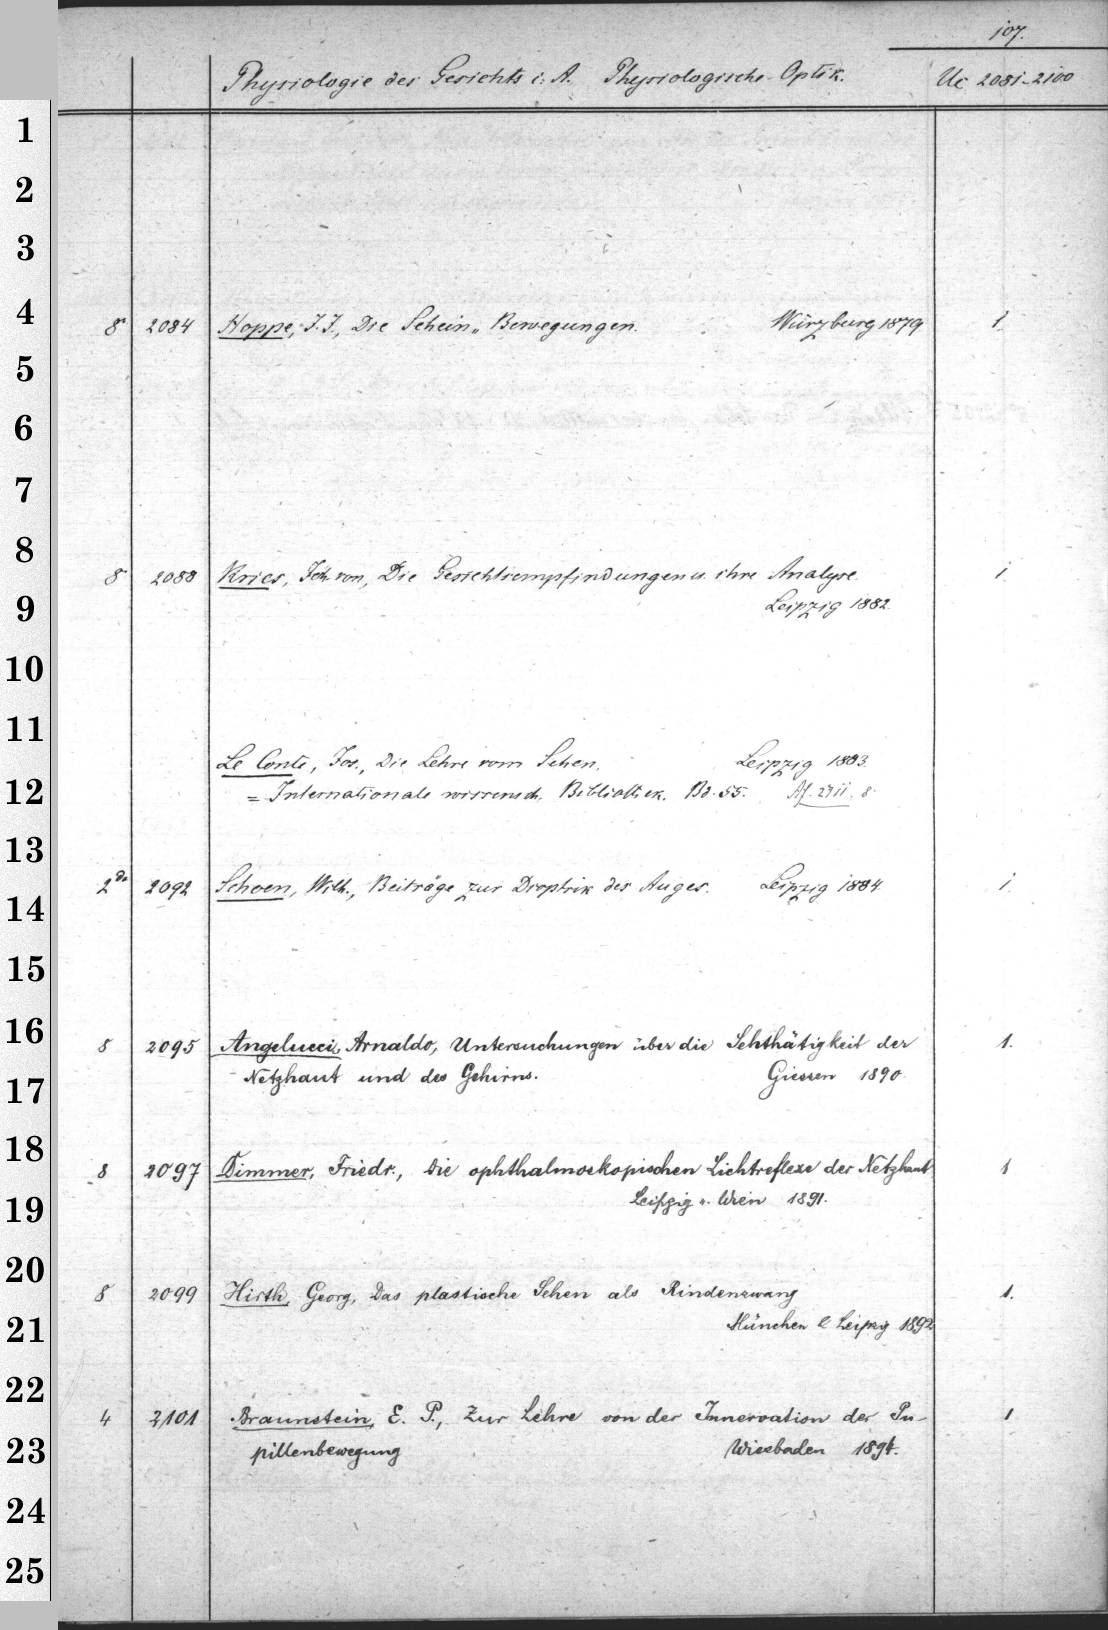 107.
Physiologie des Gesichts i. A. Physiologische Optik. Uc 2081-2100
1
2
3
4
8° 2084 Hoppe, J. J., Die Schein-Bewegungen. Würzburg 1879 1
5
6
7
8
8° 2088 Kries, Joh. von, Die Gesichtsempfindungen u. ihre Analyse. 1
9
Leipzig 1882.
10
11
Le Conte, Jos., Die Lehre vom Sehen. Leipzig 1883.
12
= Internationale wissensch. Bibliothek. Bd. 55. Af. 2711. 8°
13
14
2092 Schoen, Wilh., Beiträge zur Dioptrik des Auges. Leipzig 1884. 1.
15
16
8 2095 Angelucci, Arnaldo, Untersuchungen über die Sehthätigkeit der 1.
17
Netzhaut und des Gehirns. Giessen 1890.
18
8 2097 Dimmer, Friedr., Die ophthalmoskopischen Lichtreflexe der Netzhaut 1
19
Leipzig u. Wien 1891.
20
8 2099 Hirth, Georg, Das plastische Sehen als Rindenzwang 1.
21
München & Leipzig 1892
22
4 2101 Braunstein, E. P., Zur Lehre von der Innervation der Pu- 1
23
pillenbewegung Wiesbaden 1894.
24
25